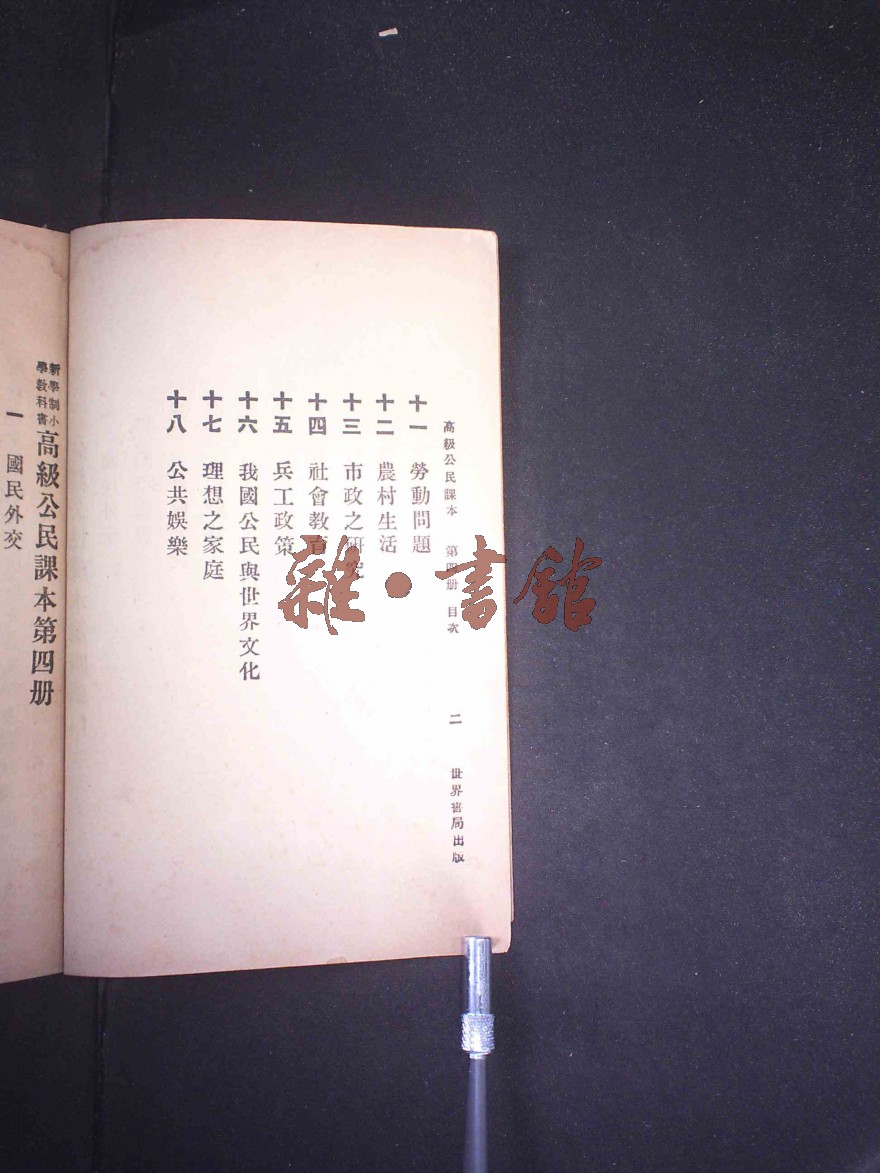 高級公民課本 第四册 目次 二 世界書局出版
十一 勞動問題
十二 農村生活
十三 市政之研究
十四 社會教育
十五 兵工政策
十六 我國公民與世界文化
十七 理想之家庭
十八 公共娛樂
新學制小學教科書 高級公民課本第四册
一 國民外交
雜·書館